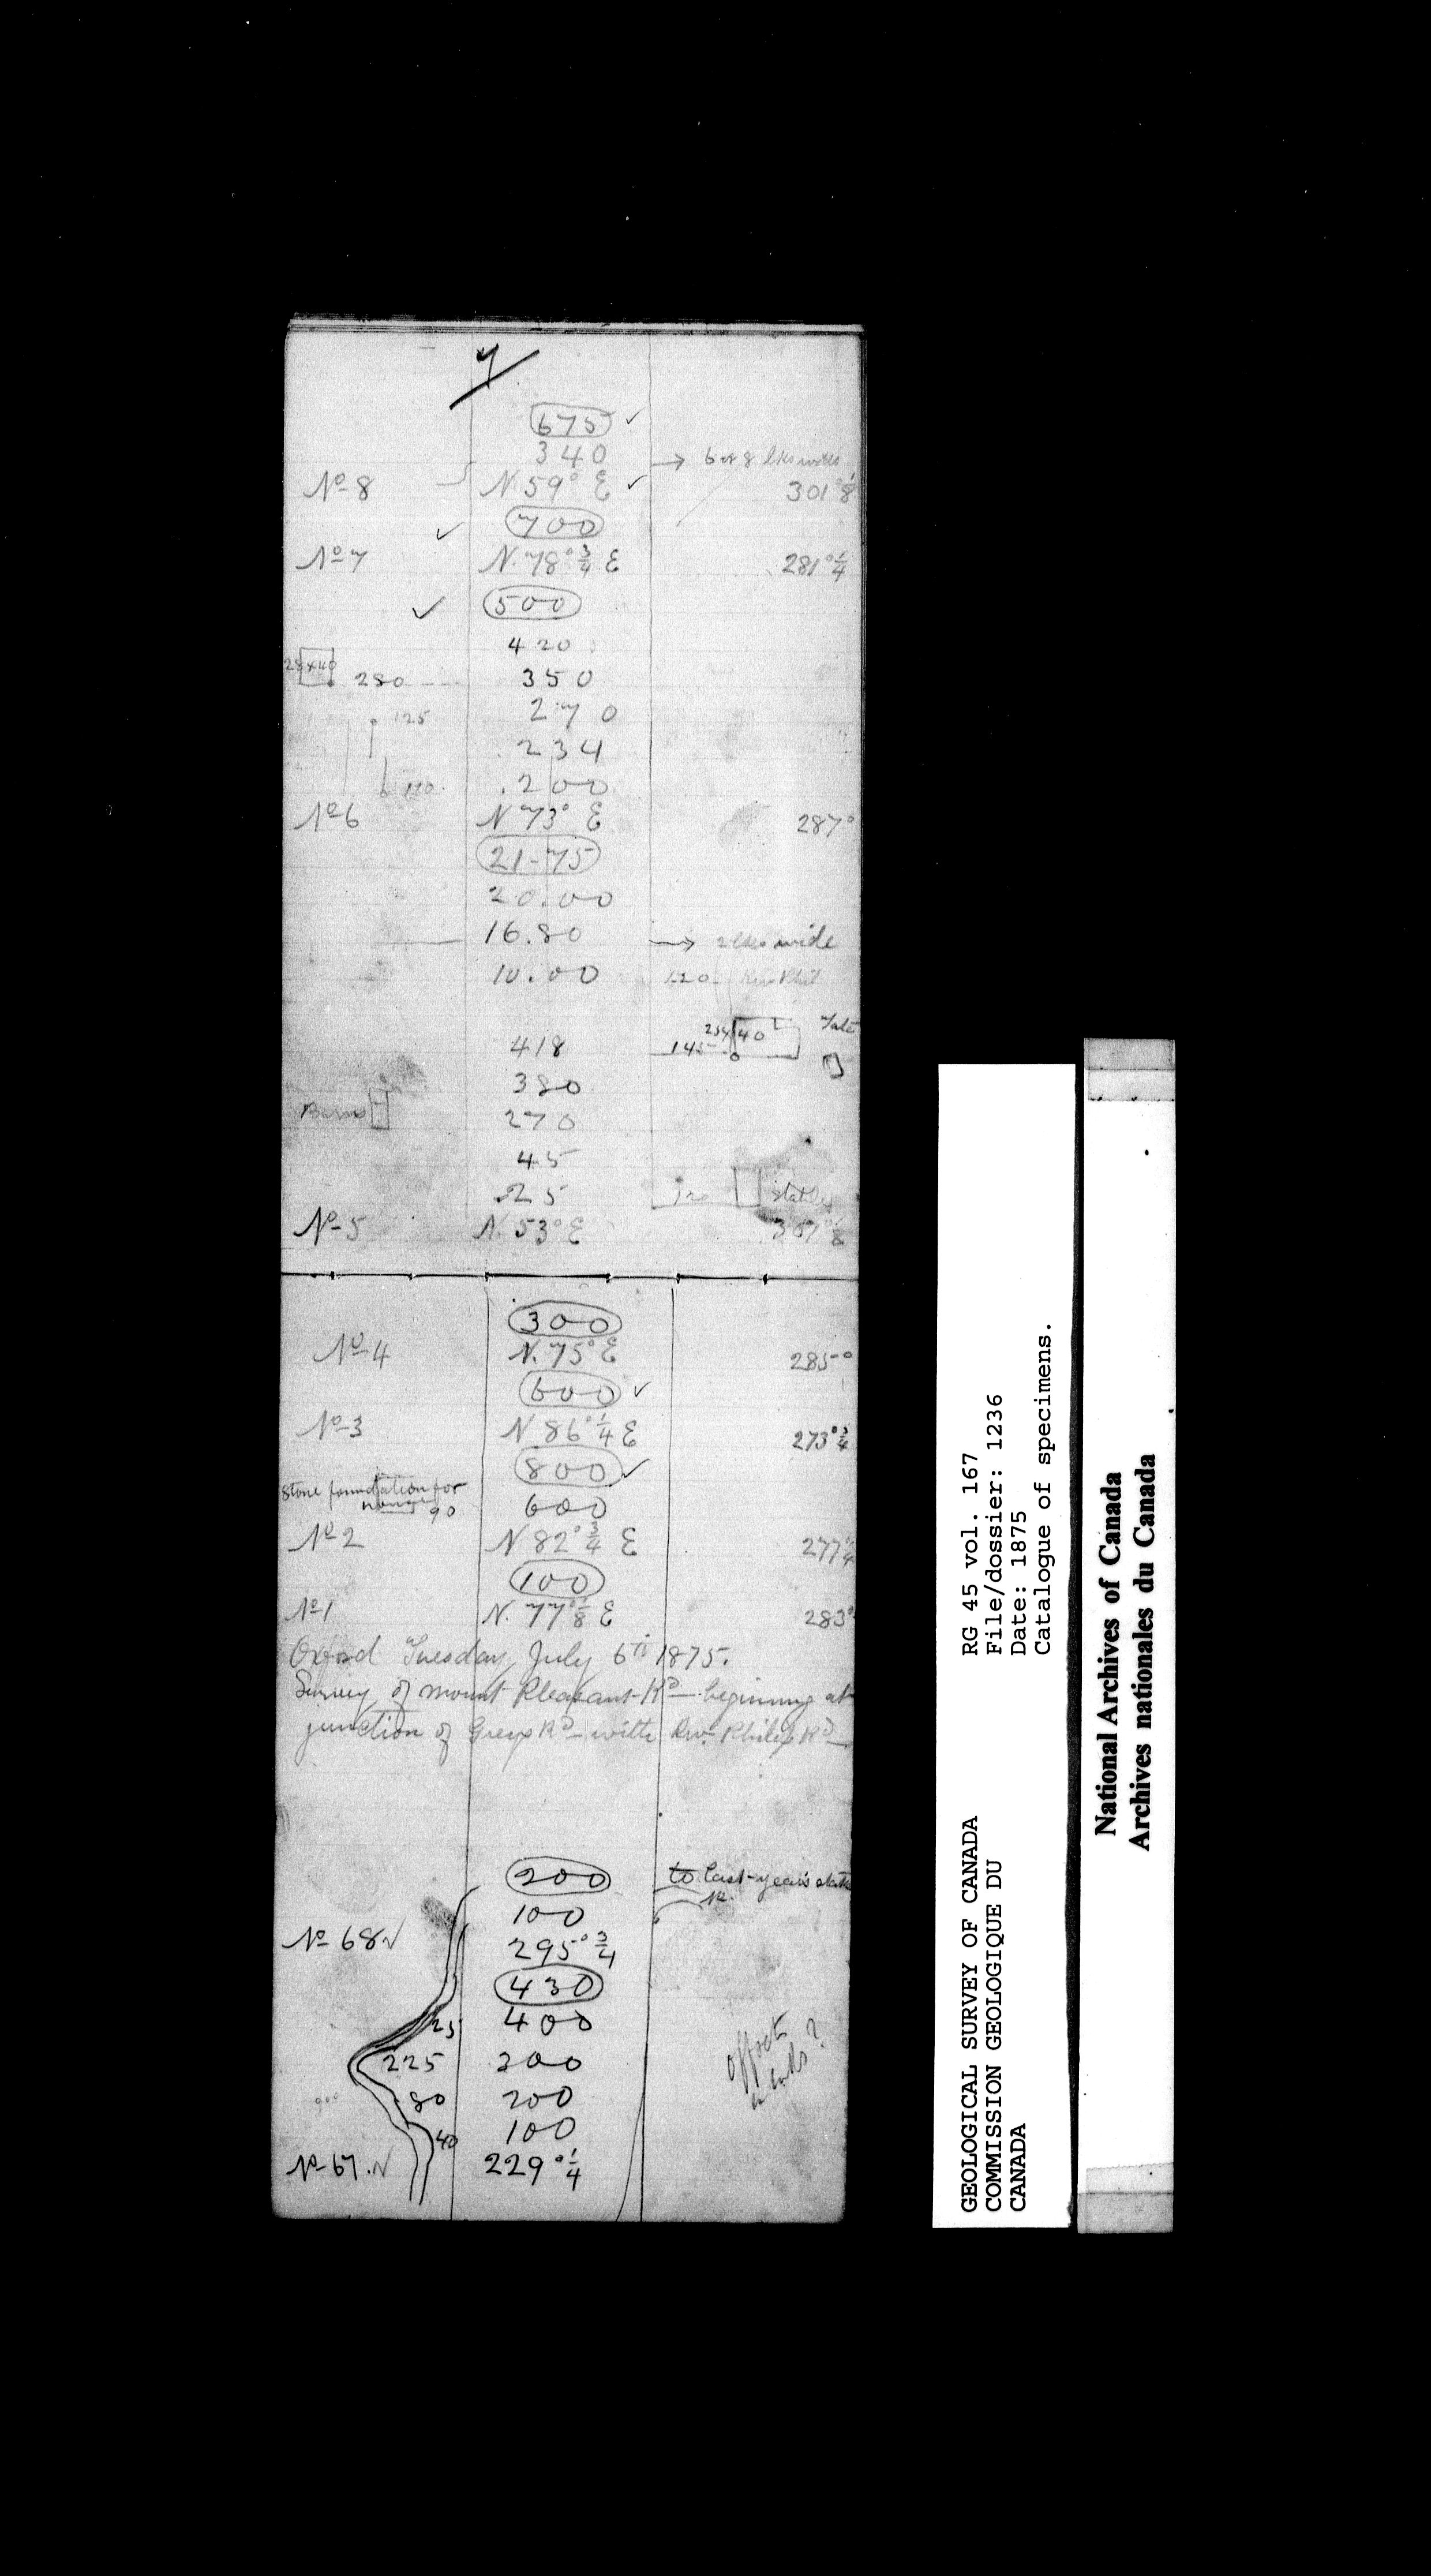 7
675 ✓
340 → 6 or 8 lks wide
No 8 N 59° E ✓ 301° 1/8
✓ 700
No 7 N. 78° 3/4 E 281° 1/4
✓ 500
420
280 350
125 270
234
200
No 6 N 73° E 287°
21-75
20.00
16.80 → 2 lks wide
10.00 120
418 145 40
380
Barns 270
45
25 stable
No 5 N. 53° E
300
No 4 N. 75° E 285°
600 ✓
No 3 N 86° 1/4 E 273° 3/4
800 ✓
Stone foundation for
house 90 600
No 2 N 82° 3/4 E 277
100
No 1 N. 77° 1/8 E 283°
Oxford Tuesday July 6th 1875.
Survey of Mount Pleasant Rd beginning at
junction of Greys Rd with Riv. Philip Rd
200 to last year's stake
100
No 68 ✓ 295° 3/4
430
25 400
225 300
80 200
40 100
No 67. ✓ 229° 1/4
offsets
in links?
GEOLOGICAL SURVEY OF CANADA RG 45 vol. 167
COMMISSION GEOLOGIQUE DU File/dossier: 1236
CANADA Date: 1875
Catalogue of specimens.
National Archives of Canada
Archives nationales du Canada